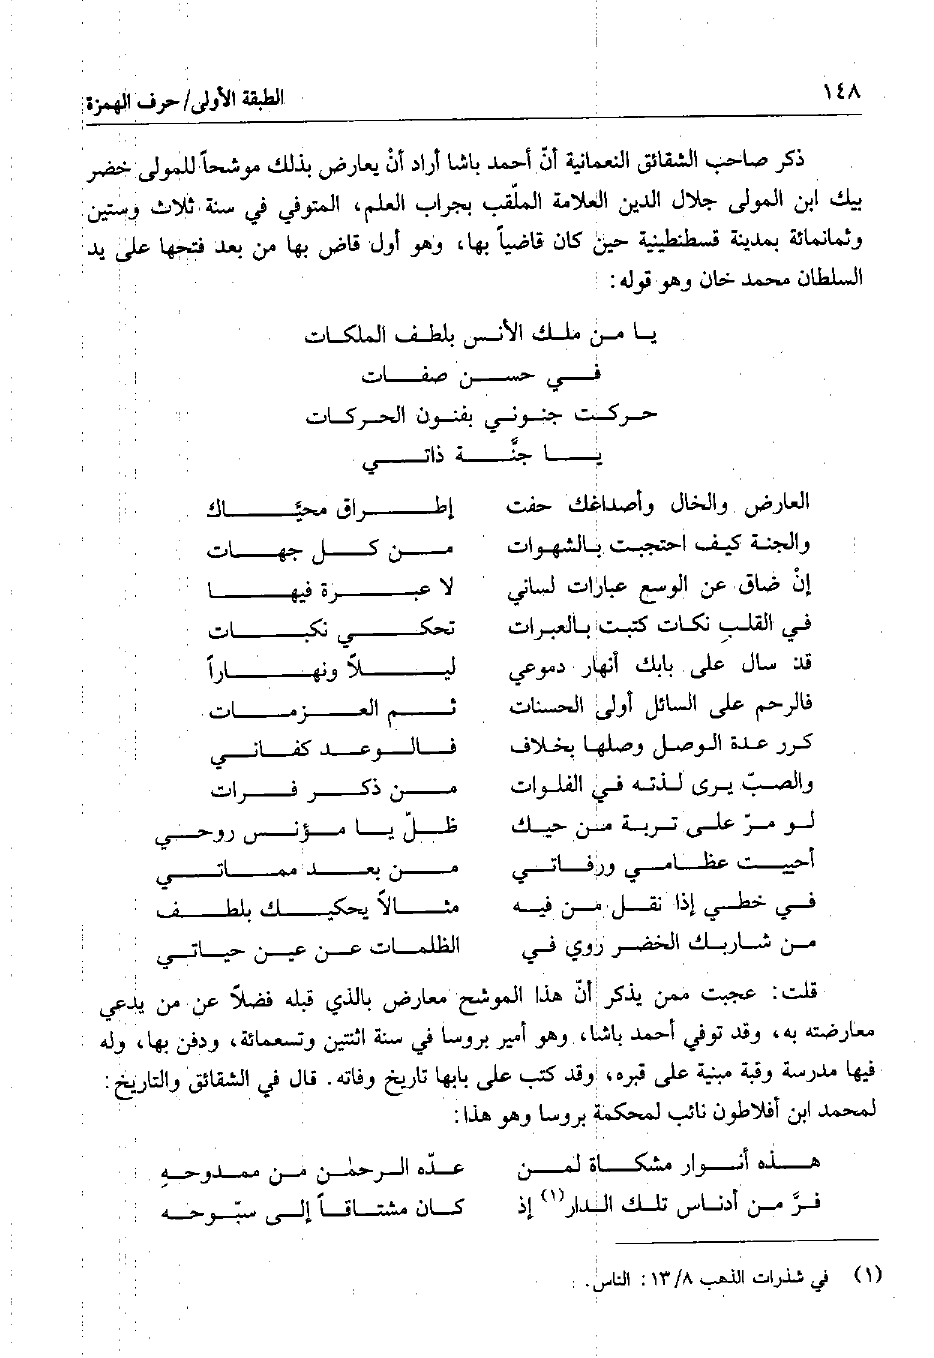 ١٤٨ الطبقة الأولى/ حرف الهمزة
ذكر صاحب الشقائق النعمانية أنّ أحمد باشا أراد أنْ يعارض بذلك موشحاً للمولى خضر
بيك ابن المولى جلال الدين العلامة الملّقب بجراب العلم، المتوفي في سنة ثلاث وستين
وثمانمائة بمدينة قسطنطينية حين كان قاضياً بها، وهو أول قاض بها من بعد فتحها على يد
السلطان محمد خان وهو قوله:
يا من ملك الأنس بلطف الملكات
في حسن صفات
حركت جنوني بفنون الحركات
يا جنَّة ذاتي
العارض والخال وأصداغك حفت إطراق محيَّاك
والجنة كيف احتجبت بالشهوات من كل جهات
إنْ ضاق عن الوسع عبارات لساني لا عبرة فيها
في القلب نكات كتبت بالعبرات تحكي نكبات
قد سال على بابك أنهار دموعي ليلاً ونهاراً
فالرحم على السائل أولى الحسنات ثم العزمات
كرر عدة الوصل وصلها بخلاف فالوعد كفاني
والصبّ يرى لذته في الفلوات من ذكر فرات
لو مرّ على تربة من حيك ظلّ يا مؤنس روحي
أحييت عظامي ورفاتي من بعد مماتي
في خطي إذا نقل من فيه مثالاً يحكيك بلطف
من شاربك الخضر روي في الظلمات عن عين حياتي
قلت: عجبت ممن يذكر أنّ هذا الموشح معارض بالذي قبله فضلاً عن من يدعي
معارضته به، وقد توفي أحمد باشا، وهو أمير بروسا في سنة اثنتين وتسعمائة، ودفن بها، وله
فيها مدرسة وقبة مبنية على قبره، وقد كتب على بابها تاريخ وفاته. قال في الشقائق والتاريخ:
لمحمد ابن أفلاطون نائب لمحكمة بروسا وهو هذا:
هذه أنوار مشكاة لمن عدّه الرحمٰن من ممدوحهِ
فرَّ من أدناس تلك الدار(١) إذ كان مشتاقاً إلى سبّوحه
(١) في شذرات الذهب ١٣/٨: الناس.